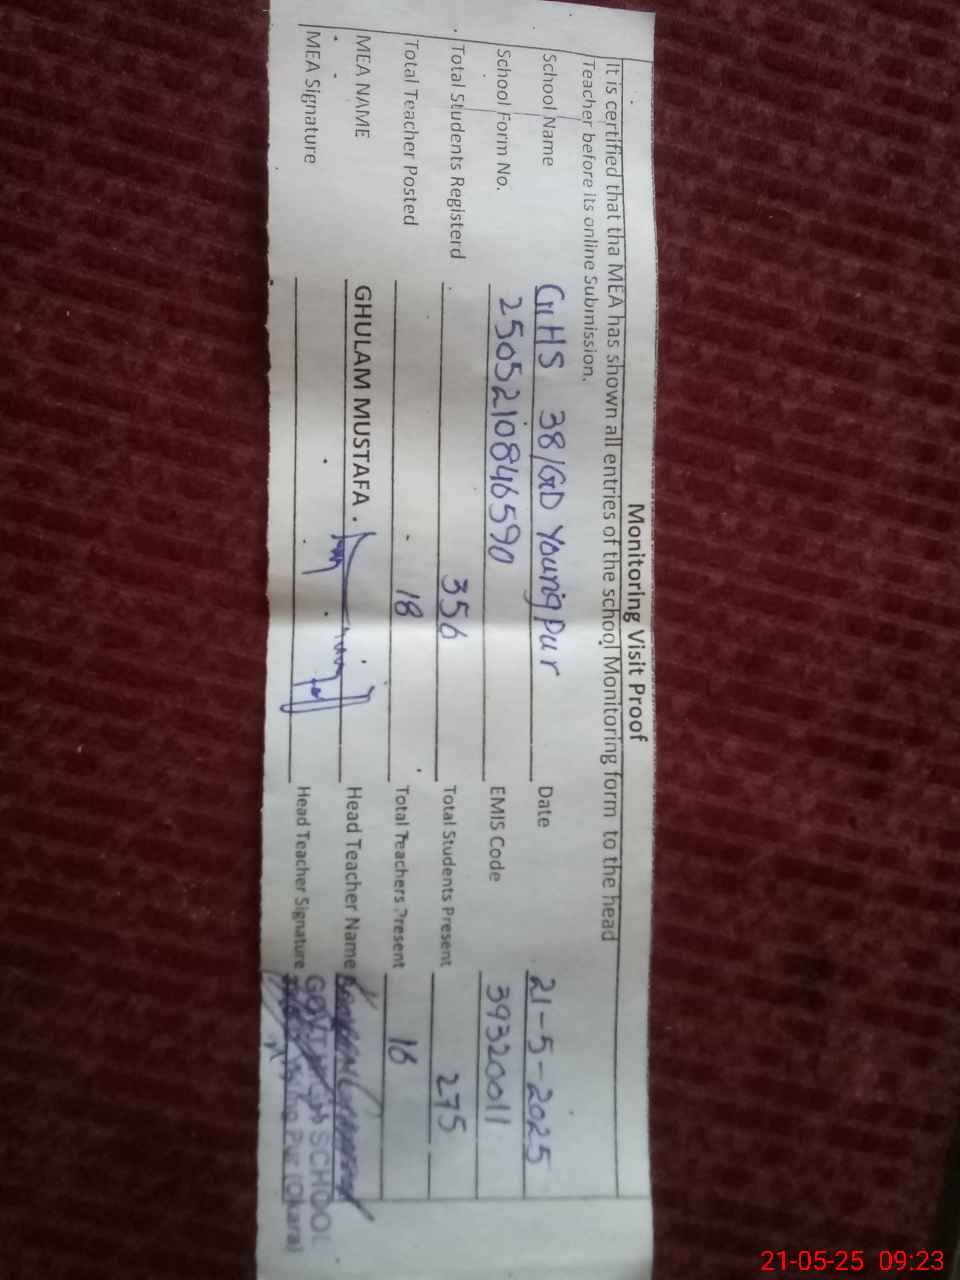 Monitoring Visit Proof
It is certified that tha MEA has shown all entries of the school Monitoring form to the head
Teacher before its online Submission.
School Name GHS 38/GD Young Pur Date 21-5-2025
School Form No. 2505210846590 EMIS Code 39320011
Total Students Registerd 356 Total Students Present 275
Total Teacher Posted 18 Total Teachers Present 16
MEA NAME GHULAM MUSTAFA. Head Teacher Name
MEA Signature Head Teacher Signature
GOVT. HIGH SCHOOL
Pur (Okara)
21-05-25 09:23